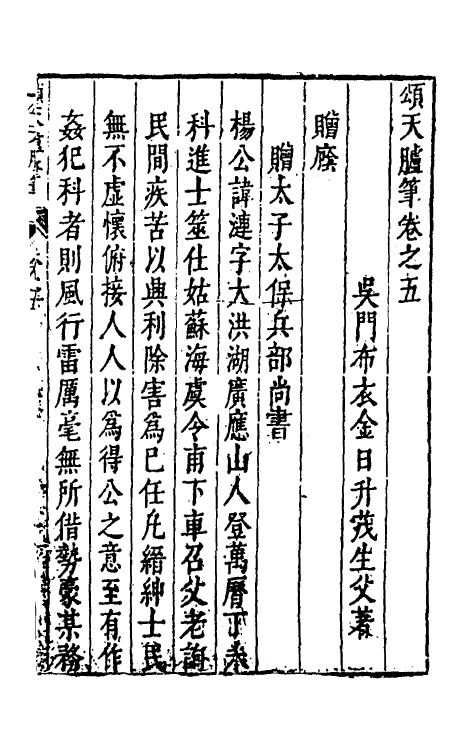 頌天臚筆卷之五
吳門布衣金日升茂生父著
贈廕
贈太子太保兵部尚書
楊公諱漣字大洪湖廣應山人登萬曆丁未
科進士筮仕姑蘇海虞令甫下車召父老詢
民間疾苦以興利除害為已任凡縉紳士民
無不虛懷俯接人人以為得公之意至有作
姦犯科者則風行雷厲毫無所借勢豪某務